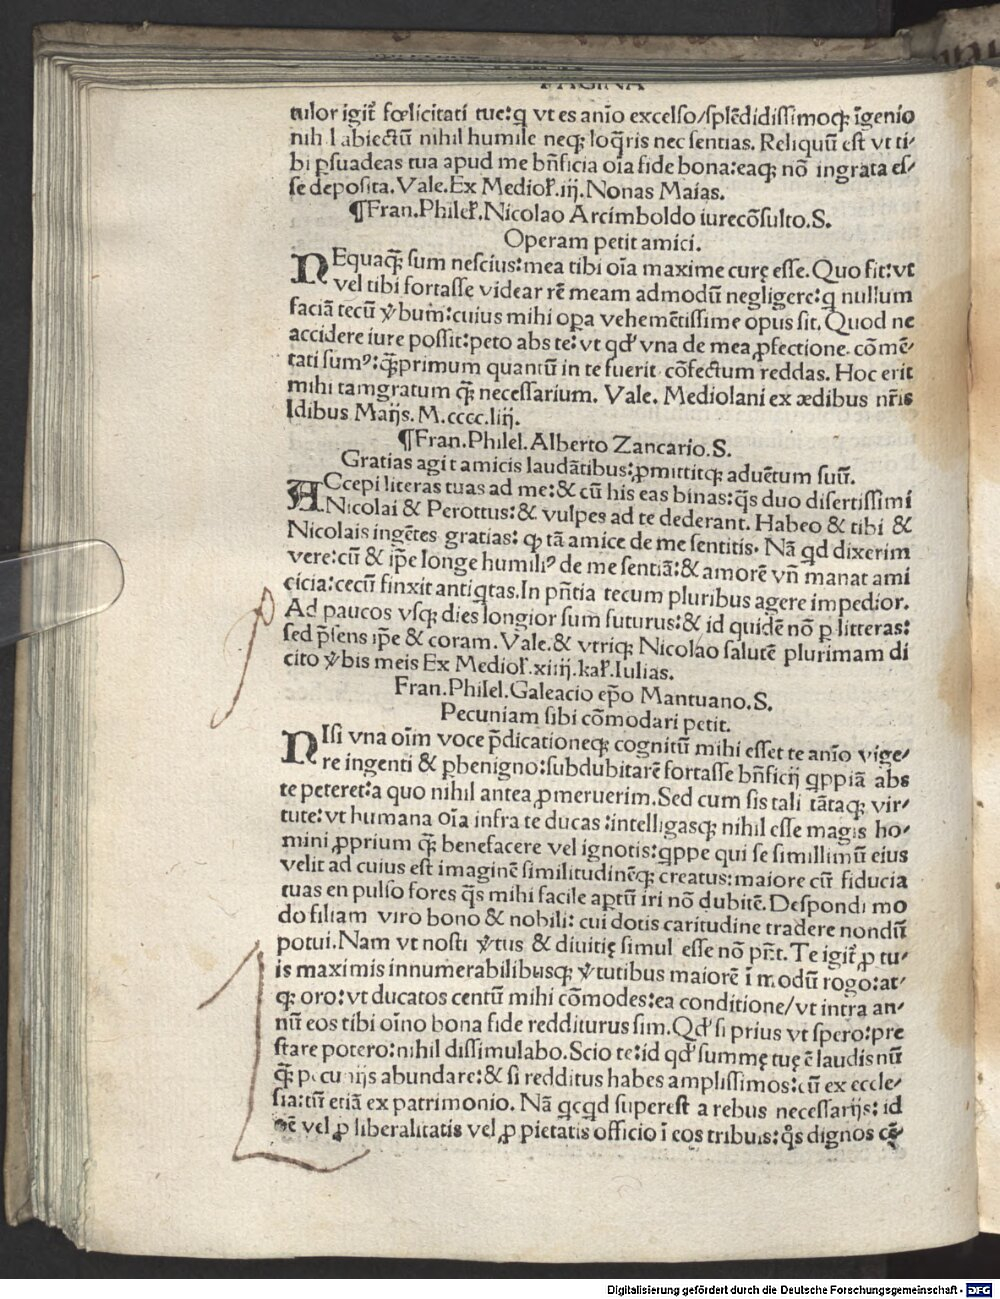 PAGINA
tulor igit̃ fœlicitati tue:q vt es anĩo excelso/splẽdidissimoq; ĩgenio
nihil abiectũ nihil humile neq; loq̃ris nec sentias. Reliquũ est vt ti⸗
bi ꝑsuadeas tua apud me bñficia oĩa fide bona:eaq; nõ ingrata es⸗
se deposita. Vale. Ex Mediol̃.iij. Nonas Maias.
¶Fran. Philel̃. Nicolao Arcimboldo iurecõsulto. S.
Operam petit amici.
NEquaq̃ sum nescius:mea tibi oĩa maxime curę esse. Quo fit:vt
vel tibi fortasse videar rẽ meam admodũ negligere:q nullum
faciã tecũ ỹbum̃:cuius mihi oꝑa vehemẽtissime opus sit. Quod ne
accidere iure possit:peto abs te: vt qd' vna de mea ꝓfectione. cõmẽ⸗
tati sumꝰ:q̃primum quantũ in te fuerit cõfectum reddas. Hoc erit
mihi tamgratum q̃ necessarium. Vale. Mediolani ex ædibus nr̃is
Idibus Maijs. M.cccc.liij.
¶Fran. Philel. Alberto Zancario. S.
Gratias agit amicis laudãtibus:ꝓmittitq; aduẽtum suũ.
ACcepi literas tuas ad me:& cũ his eas binas:q̃s duo disertissimi
Nicolai & Perottus:& vulpes ad te dederant. Habeo & tibi &
Nicolais ingẽtes gratias: ꝙ tã amice de me sentitis. Nã qd dixerim
vere:cũ & ip̃e longe humiliꝰ de me sentiã:& amorẽ vñ manat ami
cicia:cecũ finxit antiq̃tas. In pñtia tecum pluribus agere impedior.
Ad paucos vsq; dies longior sum futurus:& id quidẽ nõ ꝑ litteras:
sed p̃sens ip̃e & coram. Vale. & vtriq; Nicolao salutẽ plurimam di
cito ỹbis meis Ex Mediol̃.xiiij.kal̃.Iulias.
Fran. Philel. Galeacio ep̃o Mantuano. S.
Pecuniam sibi cõmodari petit.
NIsi vna oĩm voce p̃dicationeq; cognitũ mihi esset te anĩo vige⸗
re ingenti & ꝑbenigno:subdubitarẽ fortasse bñficij qppiã abs
te peteret:a quo nihil antea ꝓmeruerim. Sed cum sis tali tãtaq; vir⸗
tute:vt humana oĩa infra te ducas:intelligasq; nihil esse magis ho⸗
mini ꝓprium q̃ benefacere vel ignotis:qppe qui se simillimũ eius
velit ad cuius est imaginẽ similitudinẽq; creatus:maiore cũ fiducia
tuas en pulso fores q̃s mihi facile aꝑtũ iri nõ dubitẽ. Despondi mo
do filiam viro bono & nobili: cui dotis caritudine tradere nondũ
potui. Nam vt nosti ỹtus & diuitię simul esse nõ pr̃t. Te igit̃ ꝑ tu⸗
is maximis innumerabilibusq; ỹtutibus maiorẽ ĩ modũ rogo:at⸗
q; oro:vt ducatos centũ mihi cõmodes:ea conditione/vt intra an⸗
nũ eos tibi oĩno bona fide redditurus sim. Qd' si prius vt spero:pre
stare potero:nihil dissimulabo. Scio te:id qd' summę tuę ẽ laudis nũ
q̃ pecunijs abundare:& si redditus habes amplissimos:cũ ex eccle⸗
sia:tũ etiã ex patrimonio. Nã qcqd superest a rebus necessarijs: id
oẽ vel ꝓ liberalitatis vel ꝓ pietatis officio ĩ eos tribuis:q̃s dignos cẽ⸗
Digitalisierung gefördert durch die Deutsche Forschungsgemeinschaft - DFG